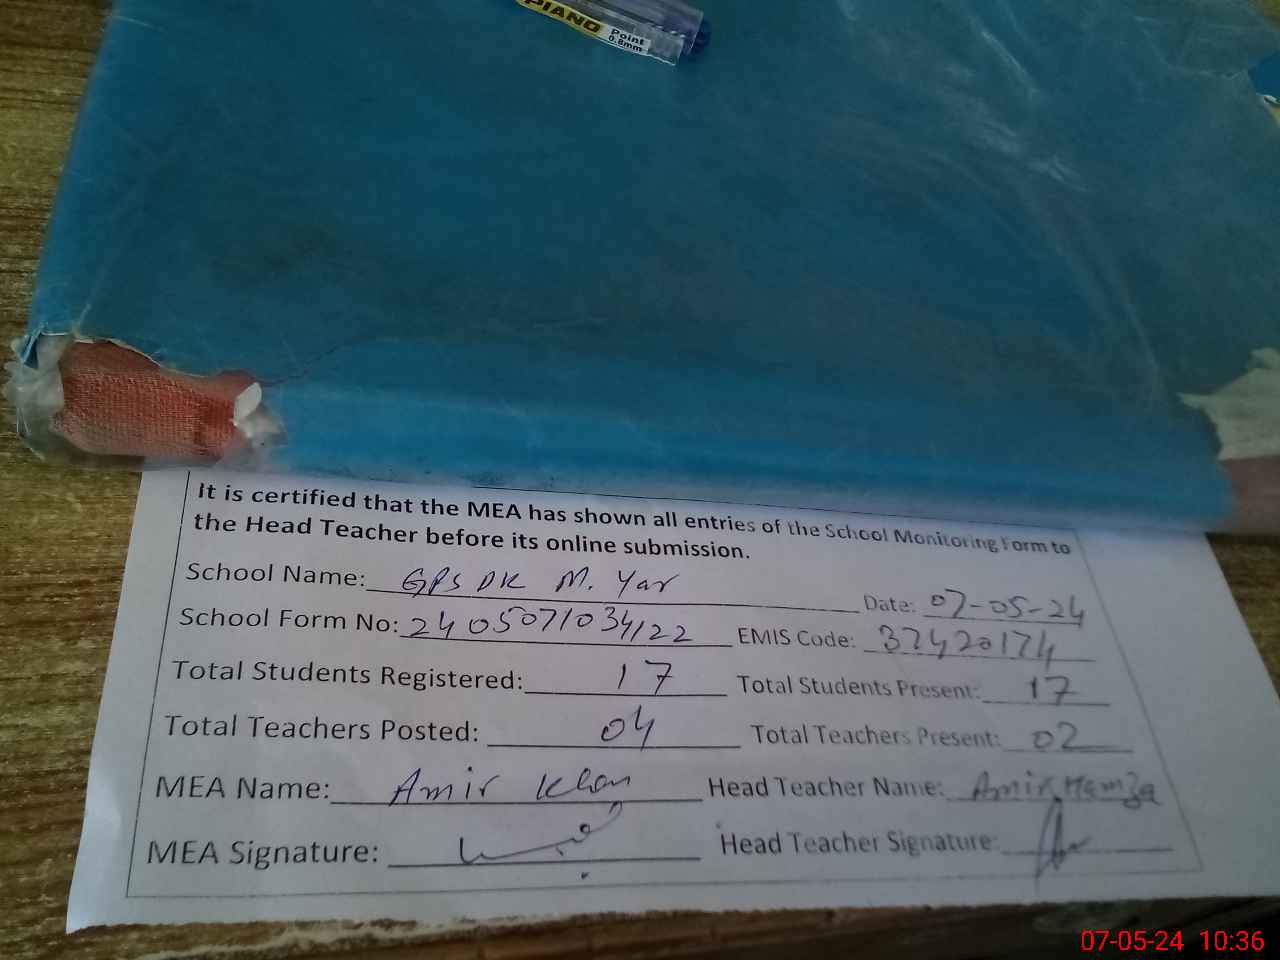 PIANO Point 0.8mm
It is certified that the MEA has shown all entries of the School Monitoring Form to
the Head Teacher before its online submission.
School Name: GPS DK M. Yar Date: 07-05-24
School Form No: 2405071034122 EMIS Code: 37420174
Total Students Registered: 17 Total Students Present: 17
Total Teachers Posted: 04 Total Teachers Present: 02
MEA Name: Amir Khan Head Teacher Name: Amir Hamza
MEA Signature: Head Teacher Signature:
07-05-24 10:36